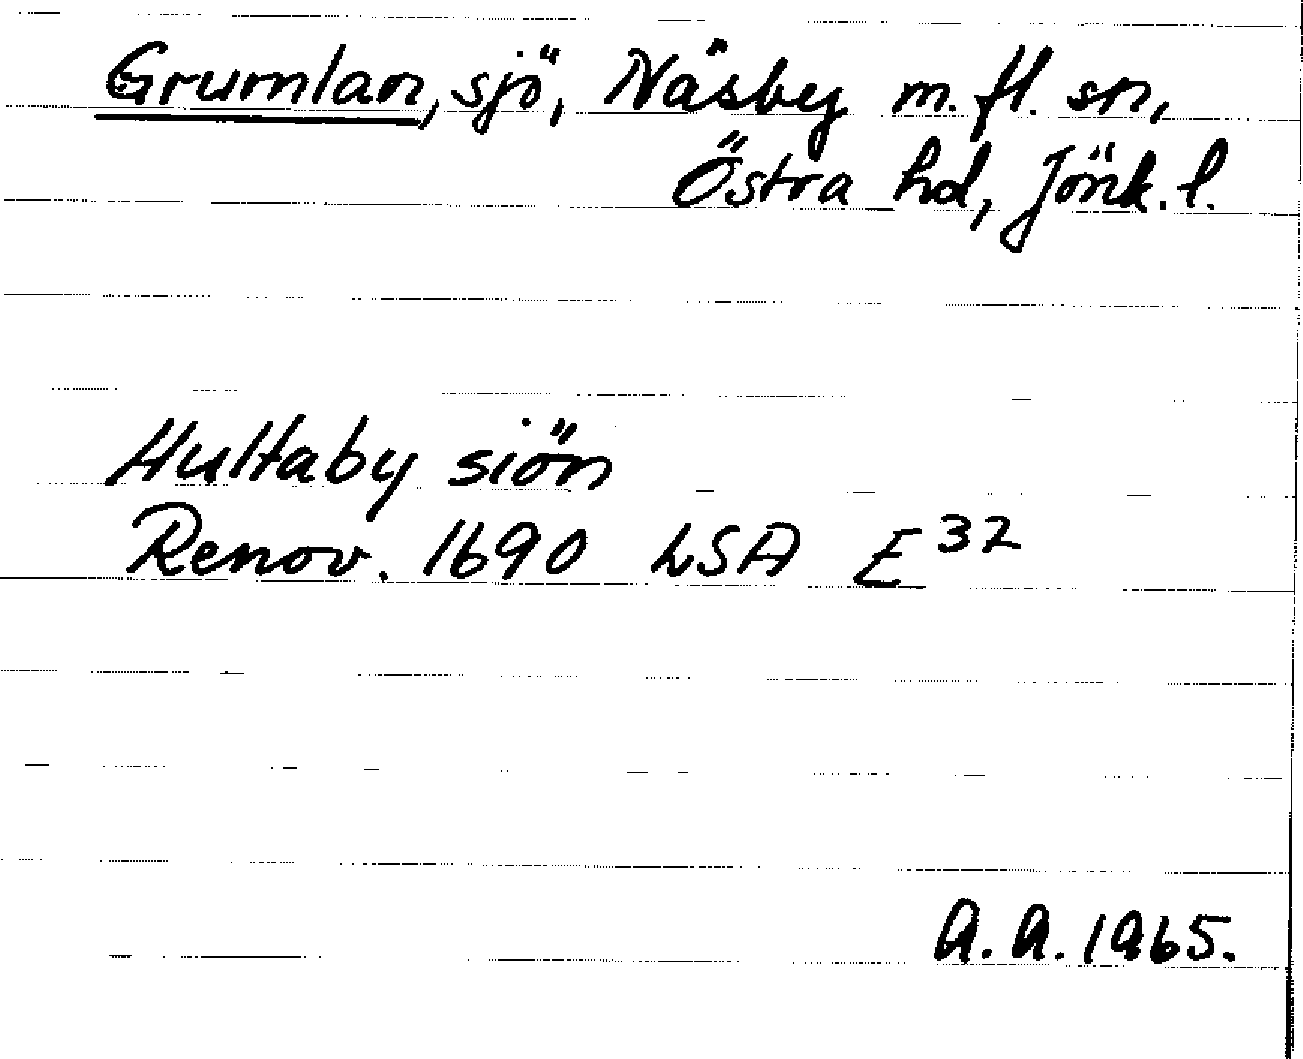 Grumlan, sjö, Näsby m. fl. sn,
Östra hd, Jönk. l.
Hultaby siön
Renov. 1690 LSA E³²
A. A. 1965.